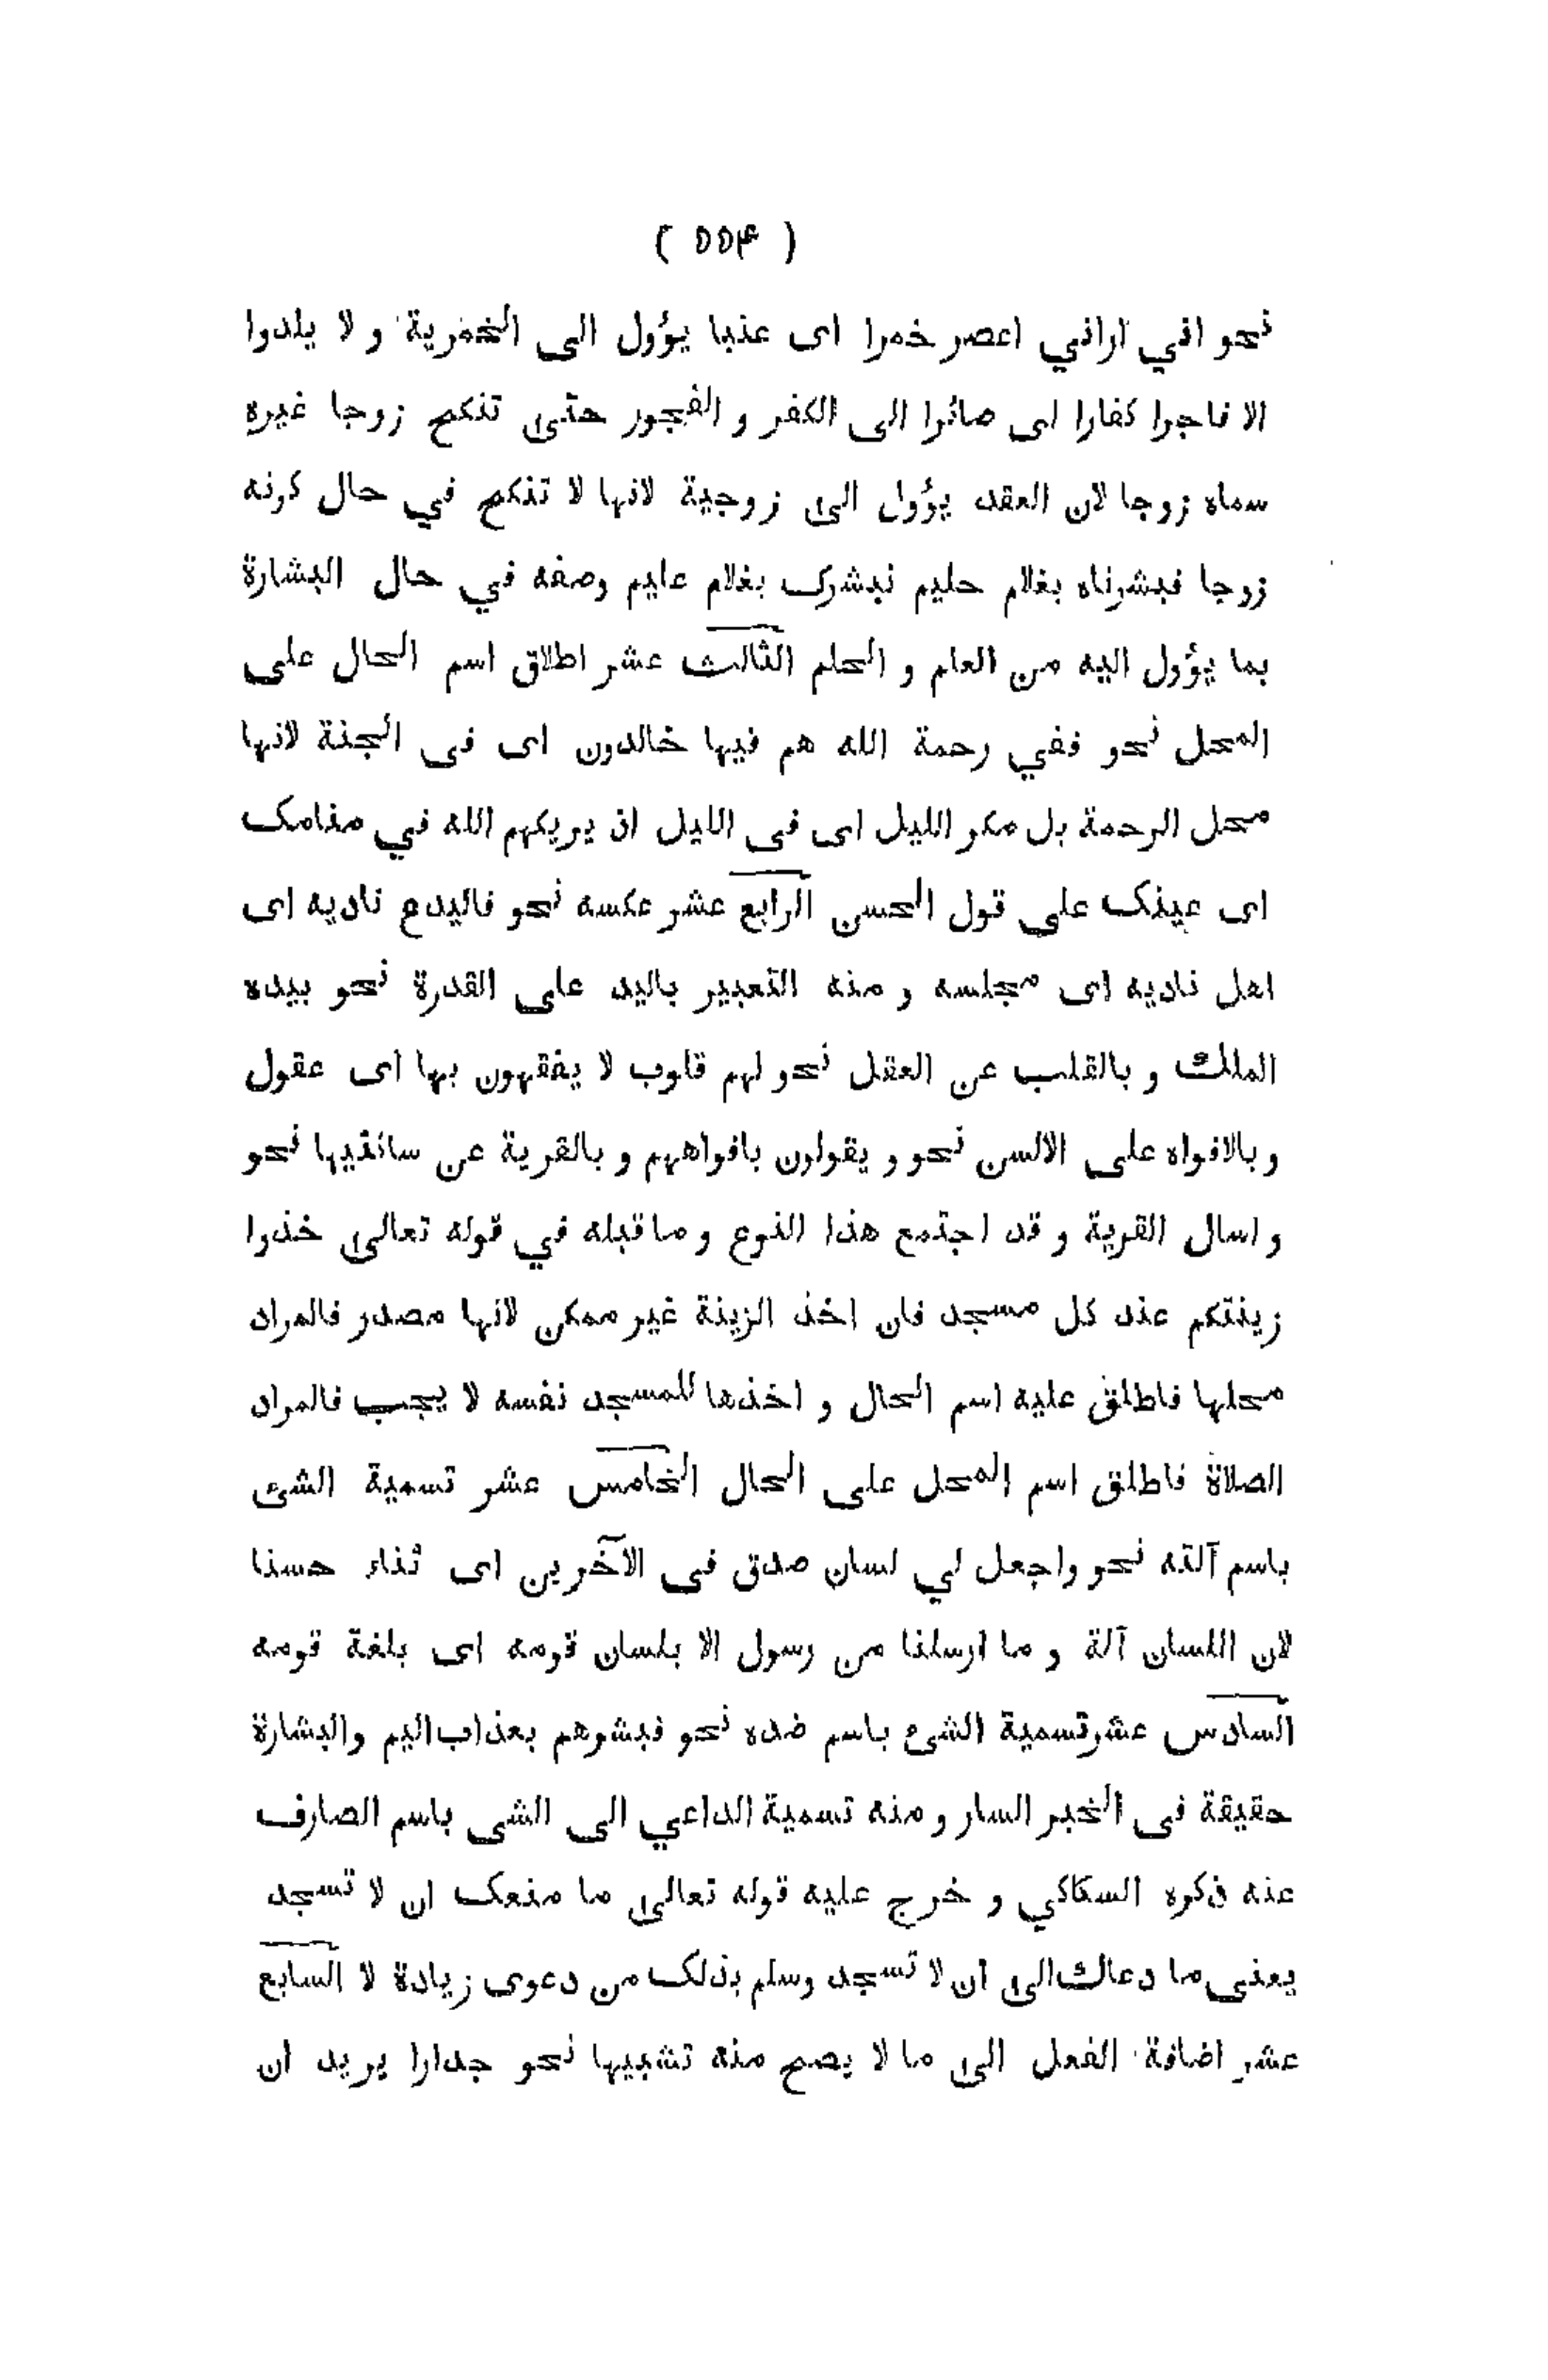 ( ٥٥۴ )
نحو اني اراني اعصر خمرا اى عنبا يؤول الى الخمرية و لا يلدوا
الا فاجرا كفارا اى صائرا الى الكفر و الفجور حتى تنكح زوجا غيره
سماه زوجا لان العقد يؤول الى زوجية لانها لا تنكح في حال كونه
زوجا فبشرناه بغلام حليم نبشرك بغلام عليم وصفه في حال البشارة
بما يؤول اليه من العلم و الحلم الثالث عشر اطلاق اسم الحال على
المحل نحو ففي رحمة الله هم فيها خالدون اى فى الجنة لانها
محل الرحمة بل مكر الليل اى فى الليل اذ يريكهم الله في منامك
اى عينك على قول الحسن الرابع عشر عكسه نحو فاليدع ناديه اى
اهل ناديه اى مجلسه و منه التعبير باليد على القدرة نحو بيده
الملك و بالقلب عن العقل نحو لهم قلوب لا يفقهون بها اى عقول
و بالافواه على الالسن نحو و يقولون بافواههم و بالقرية عن ساكنيها نحو
و اسال القرية و قد اجتمع هذا النوع و ما قبله في قوله تعالى خذوا
زينتكم عند كل مسجد فان اخذ الزينة غير ممكن لانها مصدر فالمراد
محلها فاطلق عليه اسم الحال و اخذها للمسجد نفسه لا يجب فالمراد
الصلاة فاطلق اسم المحل على الحال الخامس عشر تسمية الشئ
باسم آلته نحو واجعل لي لسان صدق فى الآخرين اى ثناء حسنا
لان اللسان آلة و ما ارسلنا من رسول الا بلسان قومه اى بلغة قومه
السادس عشر تسمية الشئ باسم ضده نحو فبشرهم بعذاب اليم والبشارة
حقيقة فى الخبر السار و منه تسمية الداعي الى الشى باسم الصارف
عنه ذكره السكاكي و خرج عليه قوله تعالى ما منعك ان لا تسجد
يعنى ما دعاك الى ان لا تسجد وسلم بذلك من دعوى زيادة لا السابع
عشر اضافة الفعل الى ما لا يصح منه تشبيها نحو جدارا يريد ان